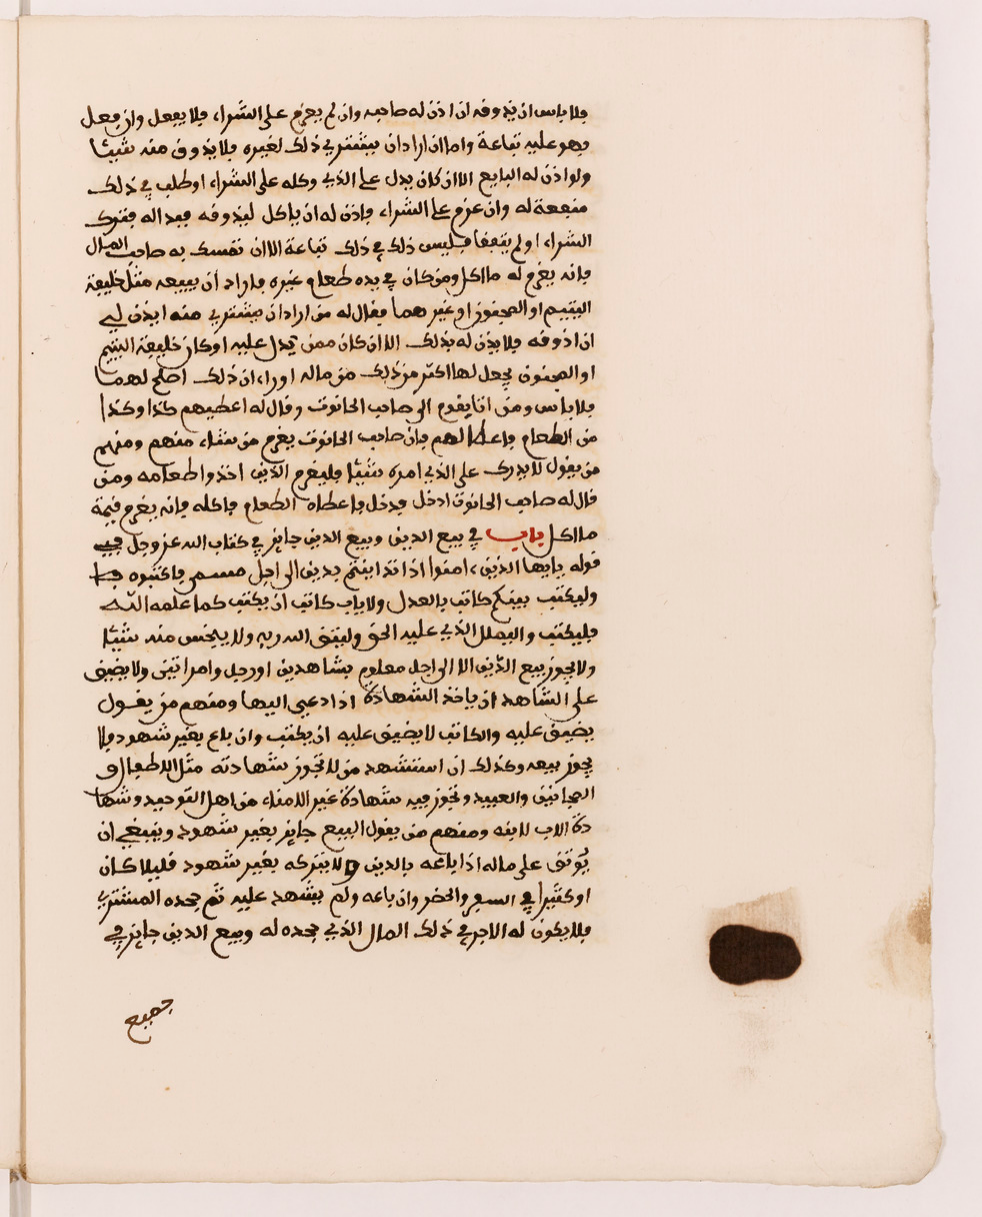 فلا باس ان يذوقه ان اذن له صاحبه وان لم يعزم على الشراء فلا يفعل وان فعل
فهو عليه تباعة واما ان اراد ان يشتري ذلك لغيره فلا يذوق منه شيئا
ولو اذن له البايع الا ان كان يدل على الذي وكله على الشراء او طلب في ذلك
منفعة له وان عزم على الشراء فاذن له ان ياكل ليذوقه فبدا له فترك
الشراء او لم يتفقا فليس ذلك في ذلك تباعة الا ان تمسك به صاحب المال
فانه يغرم له ما اكل ومن كان في يده طعام غيره فاراد ان يبيعه مثل خليفة
اليتيم او المجنون او غيرهما فقال له من اراد ان يشتري منه ايذن لي
ان اذوقه فلا يذن له بذلك الا ان كان ممن يدل عليه او كان خليفة اليتيم
او المجنون يجعل لها اكثر من ذلك من ماله او راء ان ذلك اصلح لهما
فلا باس ومن اتا بقوم الى صاحب الحانوت وقال له اعطيهم كذا وكذا
من الطعام فاعطا لهم فان صاحب الحانوت يغرم من شاء منهم ومنهم
من يقول لا يدرك على الذي امره شيئا فليغرم الذين اخذوا طعامه ومن
قال له صاحب الحانوت ادخل فدخل فاعطاه الطعام فاكله فانه يغرم قيمة
ما اكل باب في بيع الدين وبيع الدين جايز في كتاب الله عز وجل في
قوله يايها الذين ءامنوا اذا تداينتم بدين الى اجل مسمى فاكتبوه
وليكتب بينكم كاتب بالعدل ولا ياب كاتب ان يكتب كما علمه الله
فليكتب واليملل الذي عليه الحق وليتق الله ربه ولا يبخس منه شيئا
ولا يجوز بيع الدين الا الى اجل معلوم بشاهدين او رجل وامراتين ولا يضيق
على الشاهد ان ياخذ الشهادة اذا دعي اليها ومنهم من يقول
يضيق عليه والكاتب لا يضيق عليه ان يكتب وان باع بغير شهود فلا
يجوز بيعه وكذلك ان استشهد من لا تجوز شهادته مثل الاطفال و
المجانين والعبيد وتجوز فيه شهادة غير الامناء من اهل التوحيد وشها
دة الاب لابنه ومنهم من يقول البيع جايز بغير شهود وينبغي ان
يوثق على ماله اذا باعه بالدين ولا يتركه بغير شهود قليلا كان
او كثيرا في السفر والحضر وان باعه ولم يشهد عليه ثم جحده المشتري
فلا يكون له الاجر في ذلك المال الذي جحده له وبيع الدين جايز في
جميع